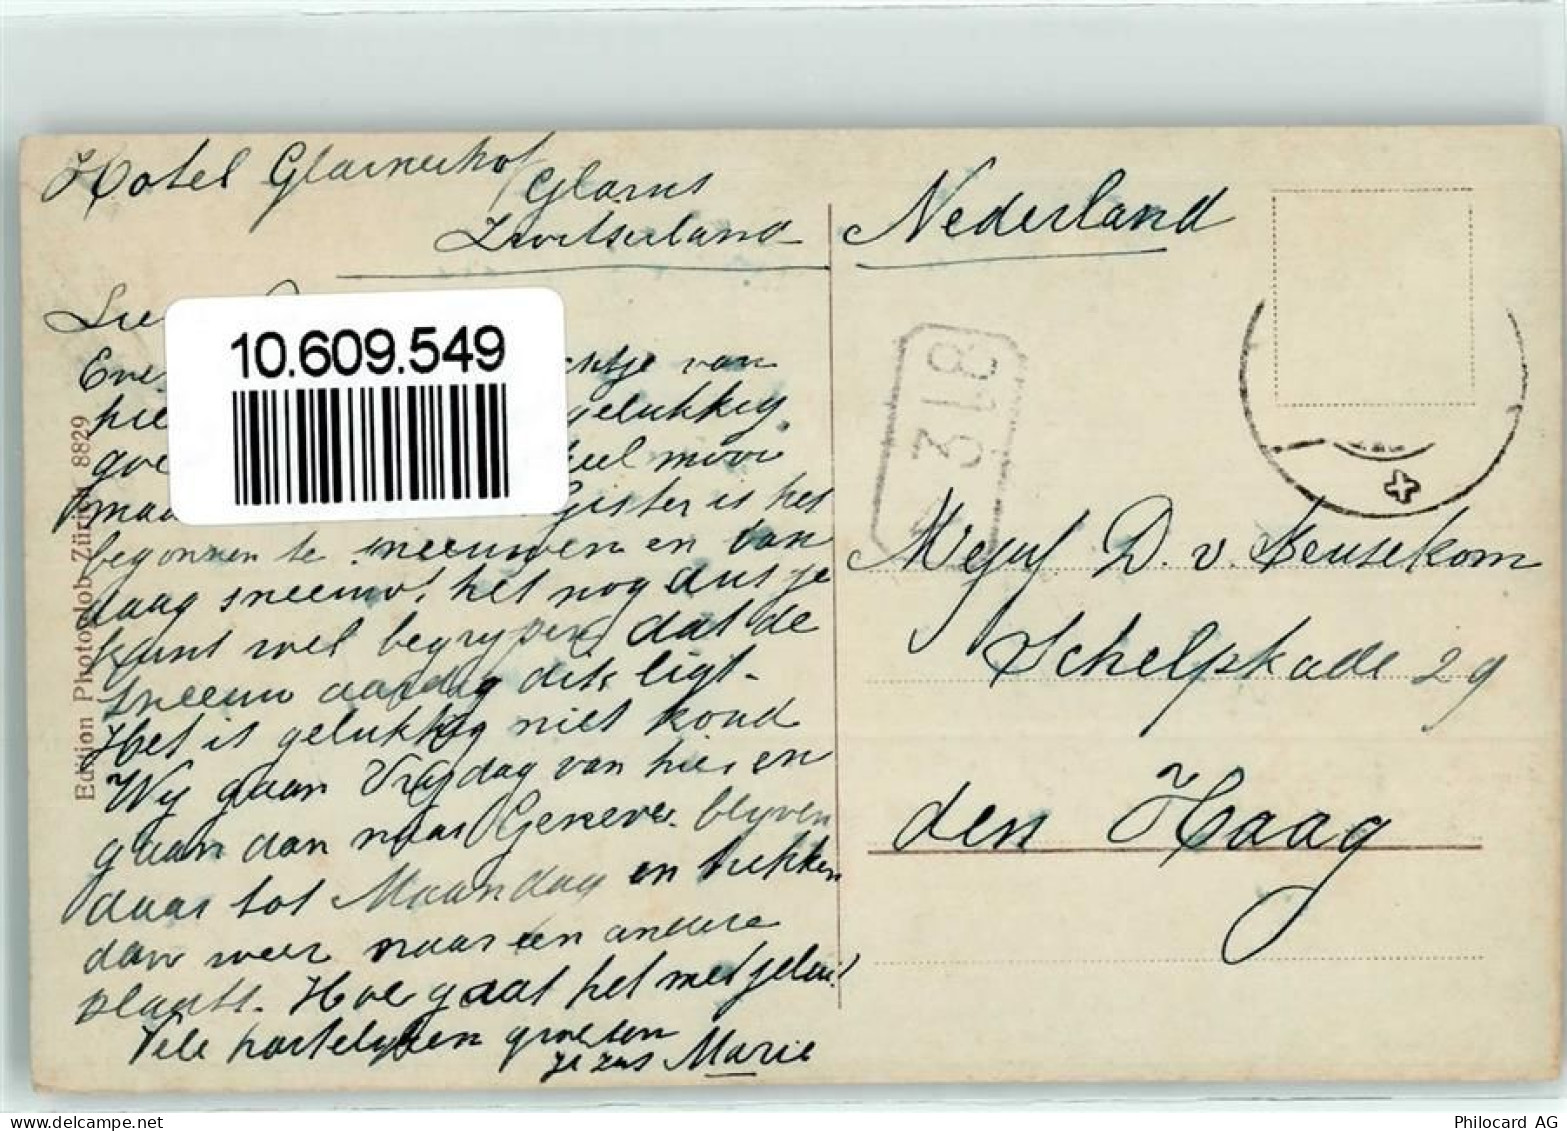 Hotel Glarnerhof
Glarus
Zwitserland
Nederland
10.609.549
chtje van
hie gelukkig
goe heel mooi
maa Gister is het
begonnen te sneeuwen en van
daag sneeuwt het nog dus je
kunt wel begrijpen dat de
sneeuw aardig dik ligt.
Het is gelukkig niet koud
Wij gaan Vrijdag van hier en
gaan dan naar Geneve. blijven
daar tot Maandag en trekken
dan weer naar een andere
plaats. Hoe gaat het met jelui?
Vele hartelijken groeten
je zus Marie
Edition Photoglob Zürich 8829
318
Mejuf. D. v. Heusekom
Schelpkade 29
den Haag
delcampe.net
Philocard AG